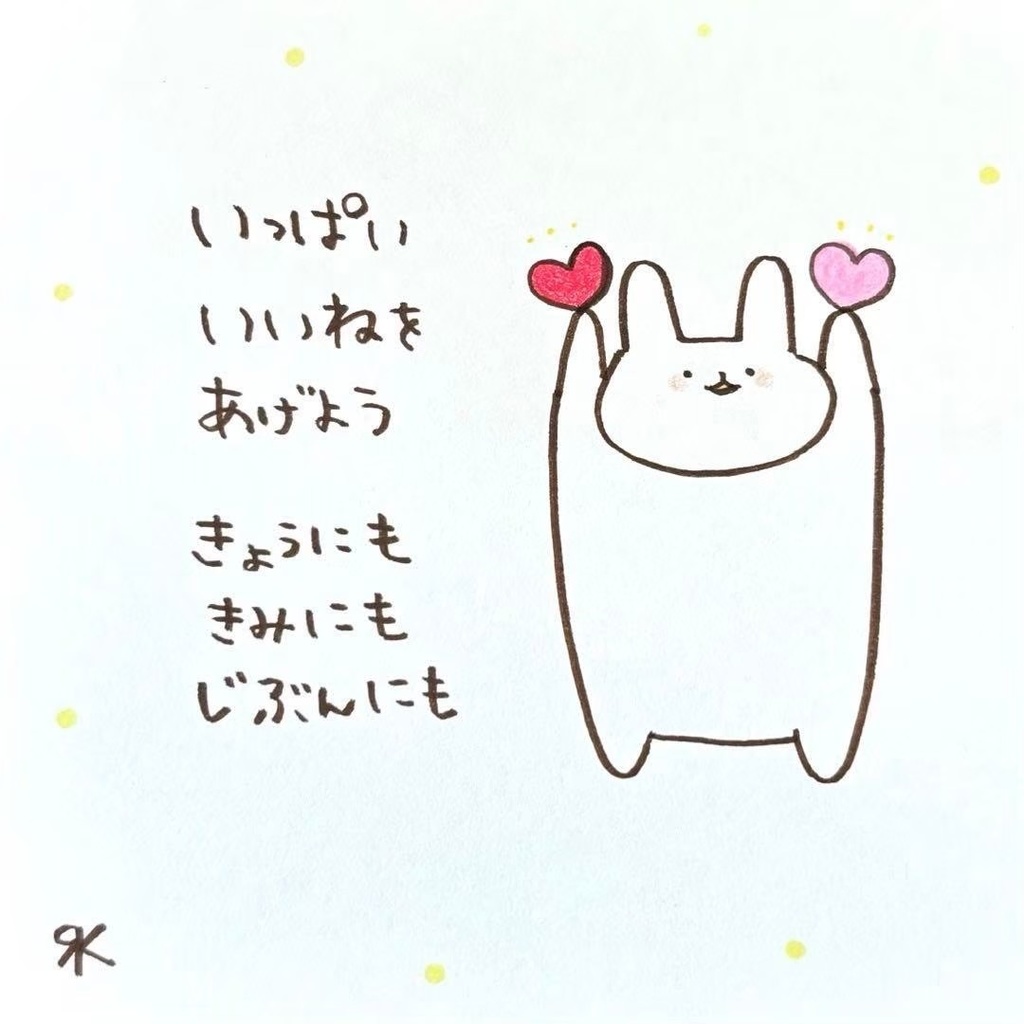 いっぱい
いいねを
あげよう
きょうにも
きみにも
じぶんにも